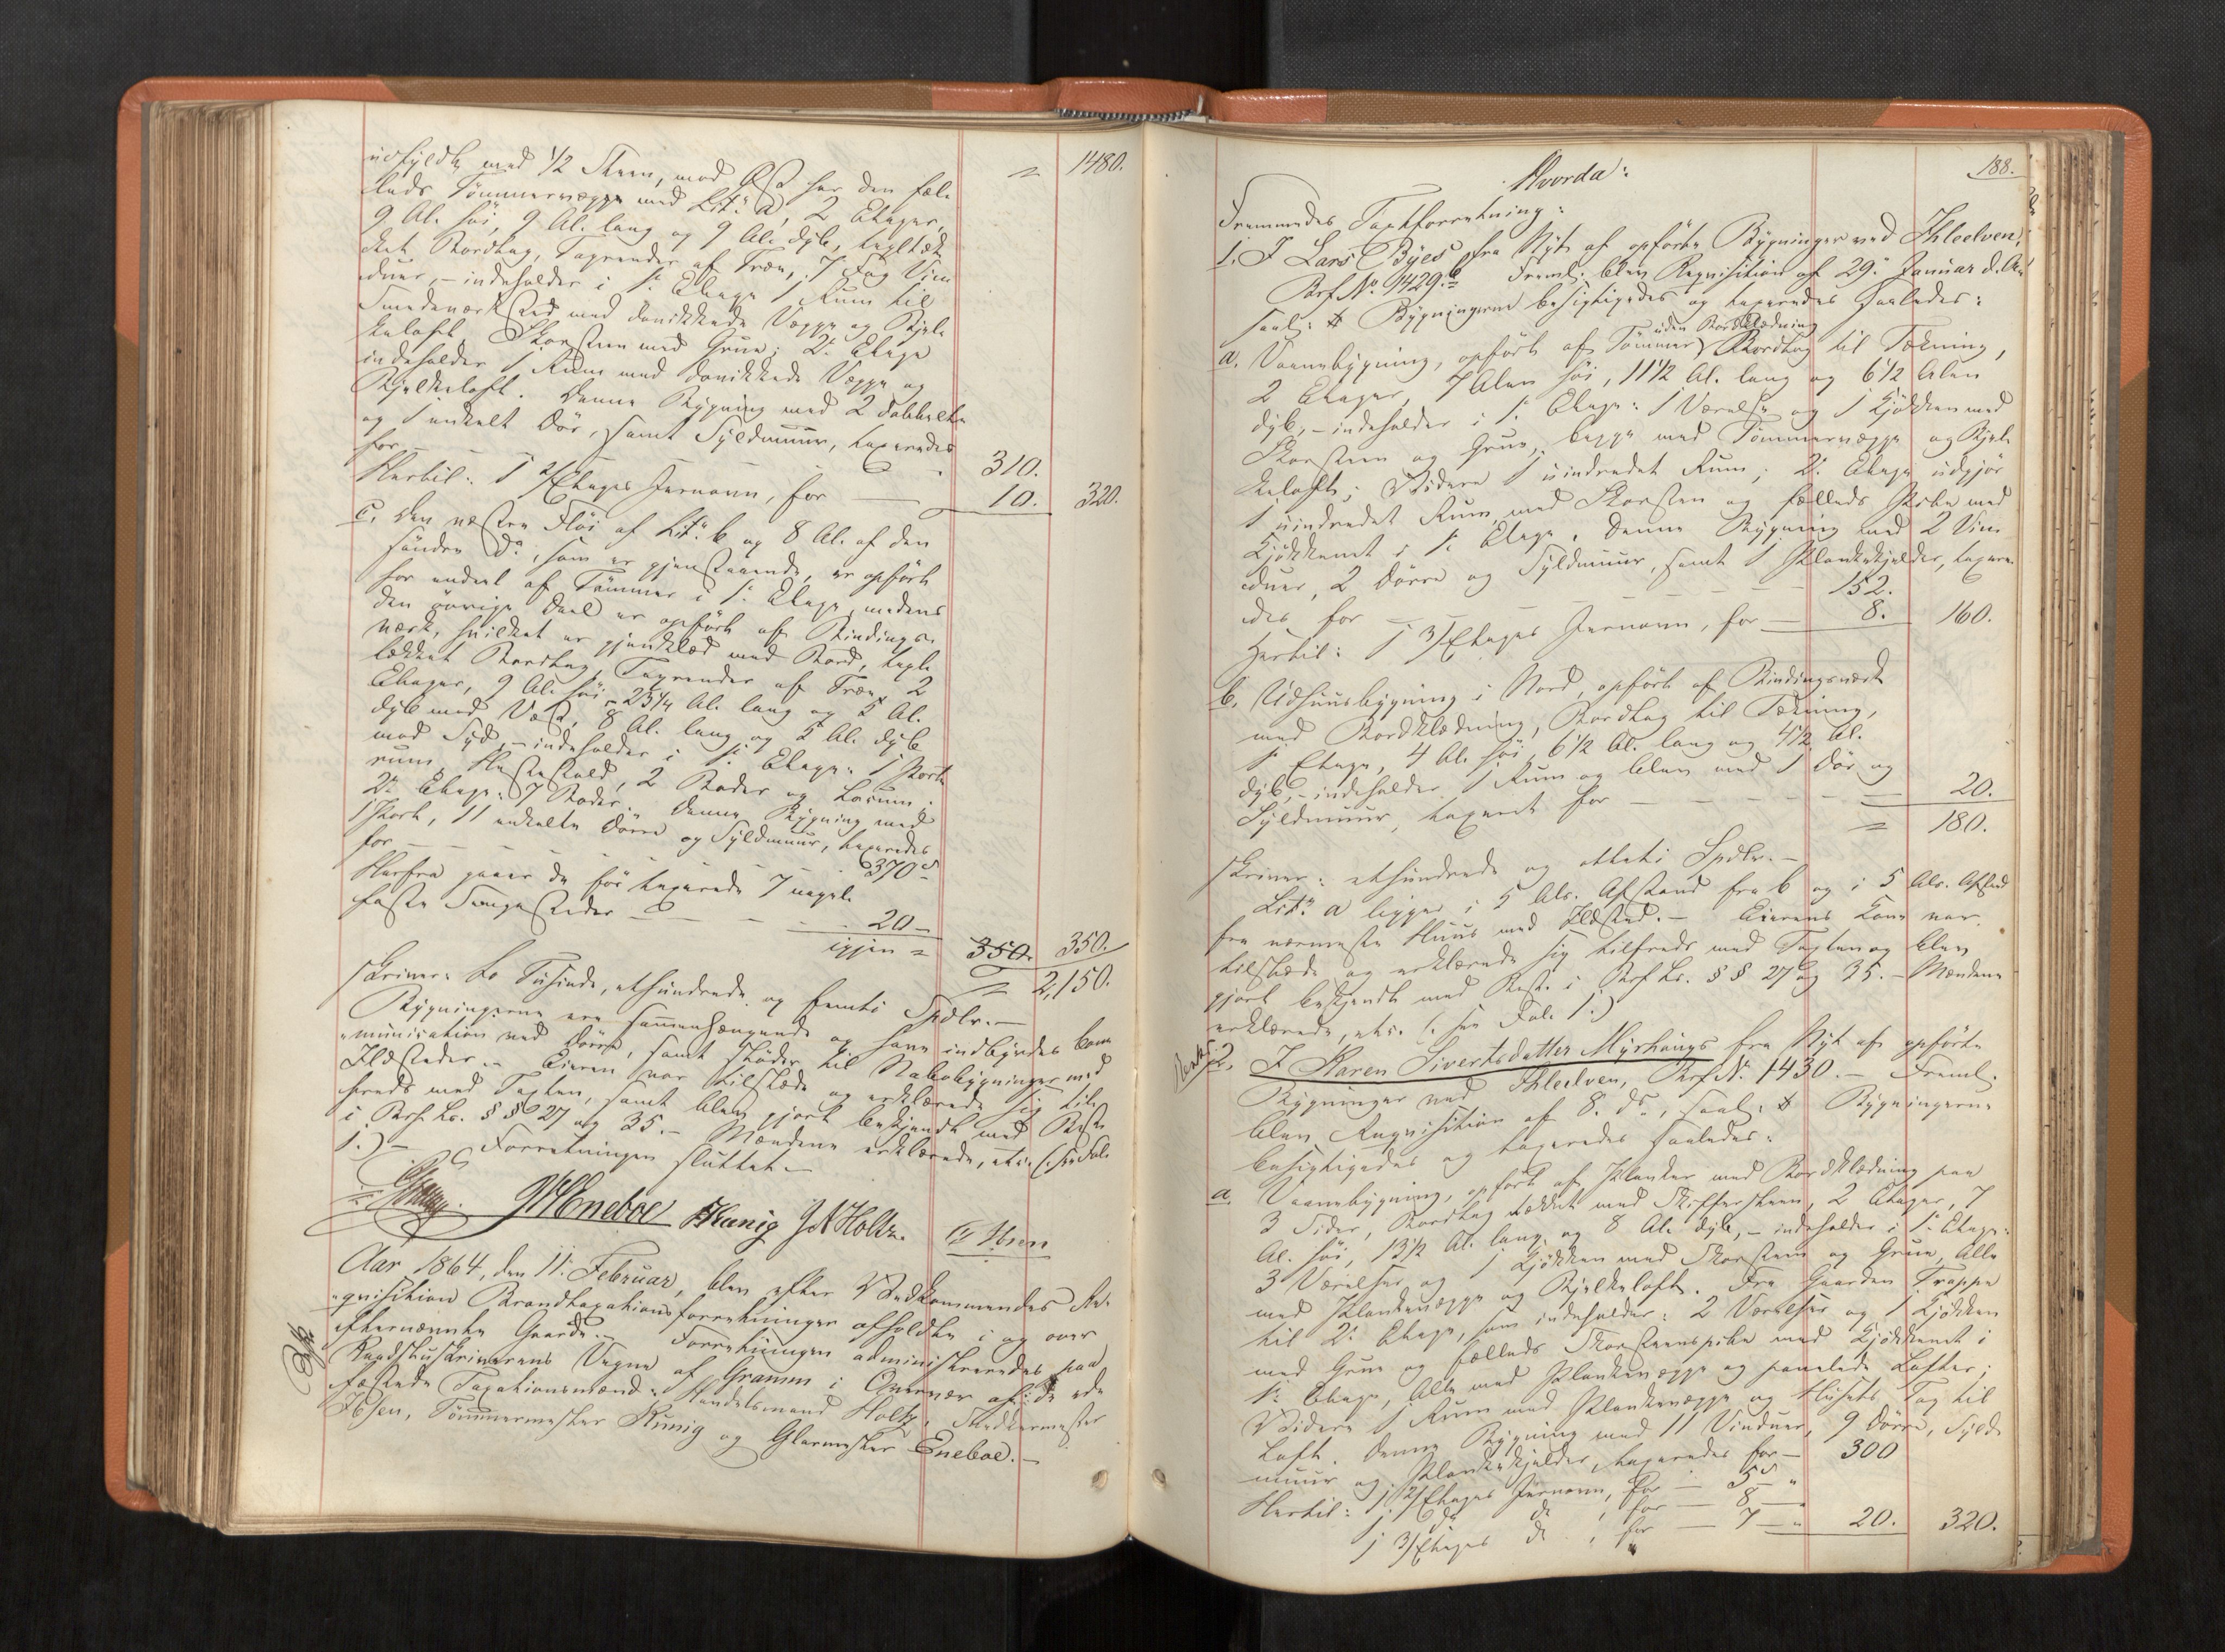 udfyldt med 1/2 Steen, mod Øst har den fæl-
leds Tømmervægge med Litr. a, 2 Etager,
9 Al. høi, 9 Al. lang og 9 Al. dyb, tegltæk-
ket Bordtag, Tagrender af Træe, 7 Fag Vin-
duer, – indeholder i 1ste Etage 1 Rum til
Smedeværksted med Vægge og Bjel-
keloft Skorsteen med Grue; 2den Etage
indeholder 1 Rum med Vægge og
Bjelkeloft. Denne Bygning med 2 dobbelte
og 1 enkelt Dør, samt Syldmuur, taxeredes
for – – – 310.
Hertil: 1 2/Etages Jernovn, for — 10. 320.
= 1480.
c, Den Fløi af Litr. b og 8 Al. af den
søndre Do, som er gjenstaaende, er opført
for endeel af Tømmer i 1ste Etage, medens
den øvrige Deel er opført af Bindings-
værk, hvilket er med Bord, tegl-
tækket Bordtag, Tagrender af Træe, 2
Etager, 9 Al. høi – 23 1/4 Al. lang og 5 Al.
dyb mod Vest, 8 Al. lang og 5 Al. dyb
mod Syd, – indeholder i 1ste Etage: 1 Port-
rum, Hestestald, 2 Boder og Locum;
2den Etage: 7 Boder. Denne Bygning med
1 Port, 11 enkelte Dørre og Syldmuur, taxeredes
for – – – 370
Herfra gaaer de før taxerede 7 nagel-
faste – – – 20 –
igjen = 350. 350.
= 2,150.
skriver: to Tusinde, ethundrede og femti Spdlr. –
Bygningerne ere sammenhængende og have indbyrdes Com-
munication ved Dørre, samt støder til Nabobygninger med
Ildsteder. – Eieren var tilstede og erklærede sig til-
freds med Taxten, samt blev gjort bekjendt med Best.
i Brf. Lr. §§ 27 og 35. – Mændene erklærede, etc. (: see Fol.
1.) – Forretningen sluttet. –
Eneboe Kunig Holtz. Ibsen
Aar 1864, den 11. Februar, blev efter Vedkommendes Re-
quisition Brandtaxationsforretninger afholdte i og over
efternævnte Gaarde. – Forretningen administreredes paa
Raadstuskriverens Vegne af Gramm i Overvær af: de ede-
fæstede Taxationsmænd: Handelsmand Holtz, Snedkermester
Ibsen, Tømmermester Kunig og Glarmester Eneboe. –
188.
Hvorda:
Fremmedes Taxtforretning:
1. I Lars Byes fra Nyt af opførte Bygninger ved Ihleelven,
Brf. No. 1429.b Freml. blev Requisition af 29. Januar d. A.
saal: # Bygningerne besigtigedes og taxeredes saaledes:
uden Bordklædning
a. Vaanebygning, opført af Tømmer, Bordtag til Tækning,
2 Etager, 7 Alen høi, 11 1/2 Al. lang og 6 1/2 Alen
dyb, – indeholder i 1ste Etage: 1 Værelse og 1 Kjøkken med
Skorsteen og Grue, begge med Tømmervægge og Bjel-
keloft; Videre 1 uindredet Rum; 2den Etage udgjør
1 uindredet Rum, med Skorsten og fælleds Pibe med
Kjøkkenet i 1ste Etage. Denne Bygning med 2 Vin-
duer, 2 Dørre og Syldmuur, samt 1 Plankekjelder, taxere-
des for – – – 152.
Hertil: 1 3/Etages Jernovn, for – 8. 160.
b. Udhuusbygning i Nord, opført af Bindingsværk
med Bordklædning, Bordtag til Tækning,
1 Etage, 4 Al. høi, 6 1/2 Al. lang og 4 1/2 Al.
dyb, – indeholder 1 Rum og blev med 1 Dør og
Syldmuur, taxeret for – – – 20.
= 180.
skriver: ethundrede og otteti Spdlr. –
Litr. a ligger i 5 Als. Afstand fra b og i 5 Als. Afstand
fra nærmeste Huus med Ildsted. – Eierens Kone var
tilstede og erklærede sig tilfreds med Taxten og blev
gjort bekjendt med Best. i Brf. Lr. §§ 27 og 35. – Mændene
erklærede, etc. (: see Fol. 1.)
2. I Karen Sivertsdatter Myrhaugs fra Nyt af opførte
Bygninger ved Ihleelven, Brf. No. 1430. – Freml.
blev Requisition af 8. ds., saal: # Bygningerne
besigtigedes og taxeredes saaledes:
a Vaanebygning, opført af Planker med Bordklædning paa
3 Sider, Bordtag tækket med Skiffersteen, 2 Etager, 7
Al. høi, 13 1/2 Al. lang og 8 Al. dyb, – indeholder i 1ste Etage:
3 Værelser og 1 Kjøkken med Skorsteen og Grue, Alle
med Plankevægge og Bjelkeloft. Fra Gaarden Trappe
til 2den Etage, som indeholder: 2 Værelser og 1 Kjøkken
med Grue og fælleds Skorsteenspibe med Kjøkkenet i
1ste Etage, Alle med Plankevægge og panelede Lofter;
Videre 1 Rum med Plankevægge og Husets Tag til
Loft. Denne Bygning med 11 Vinduer, 9 Dørre, Syld-
muur og Plankekjelder, taxeredes for – 300
Hertil: 1 2/Etages Jernovn, for – 5 "
1 do do, for – 8 – "
1 3/Etages do, for – 7 – " 20. 320.